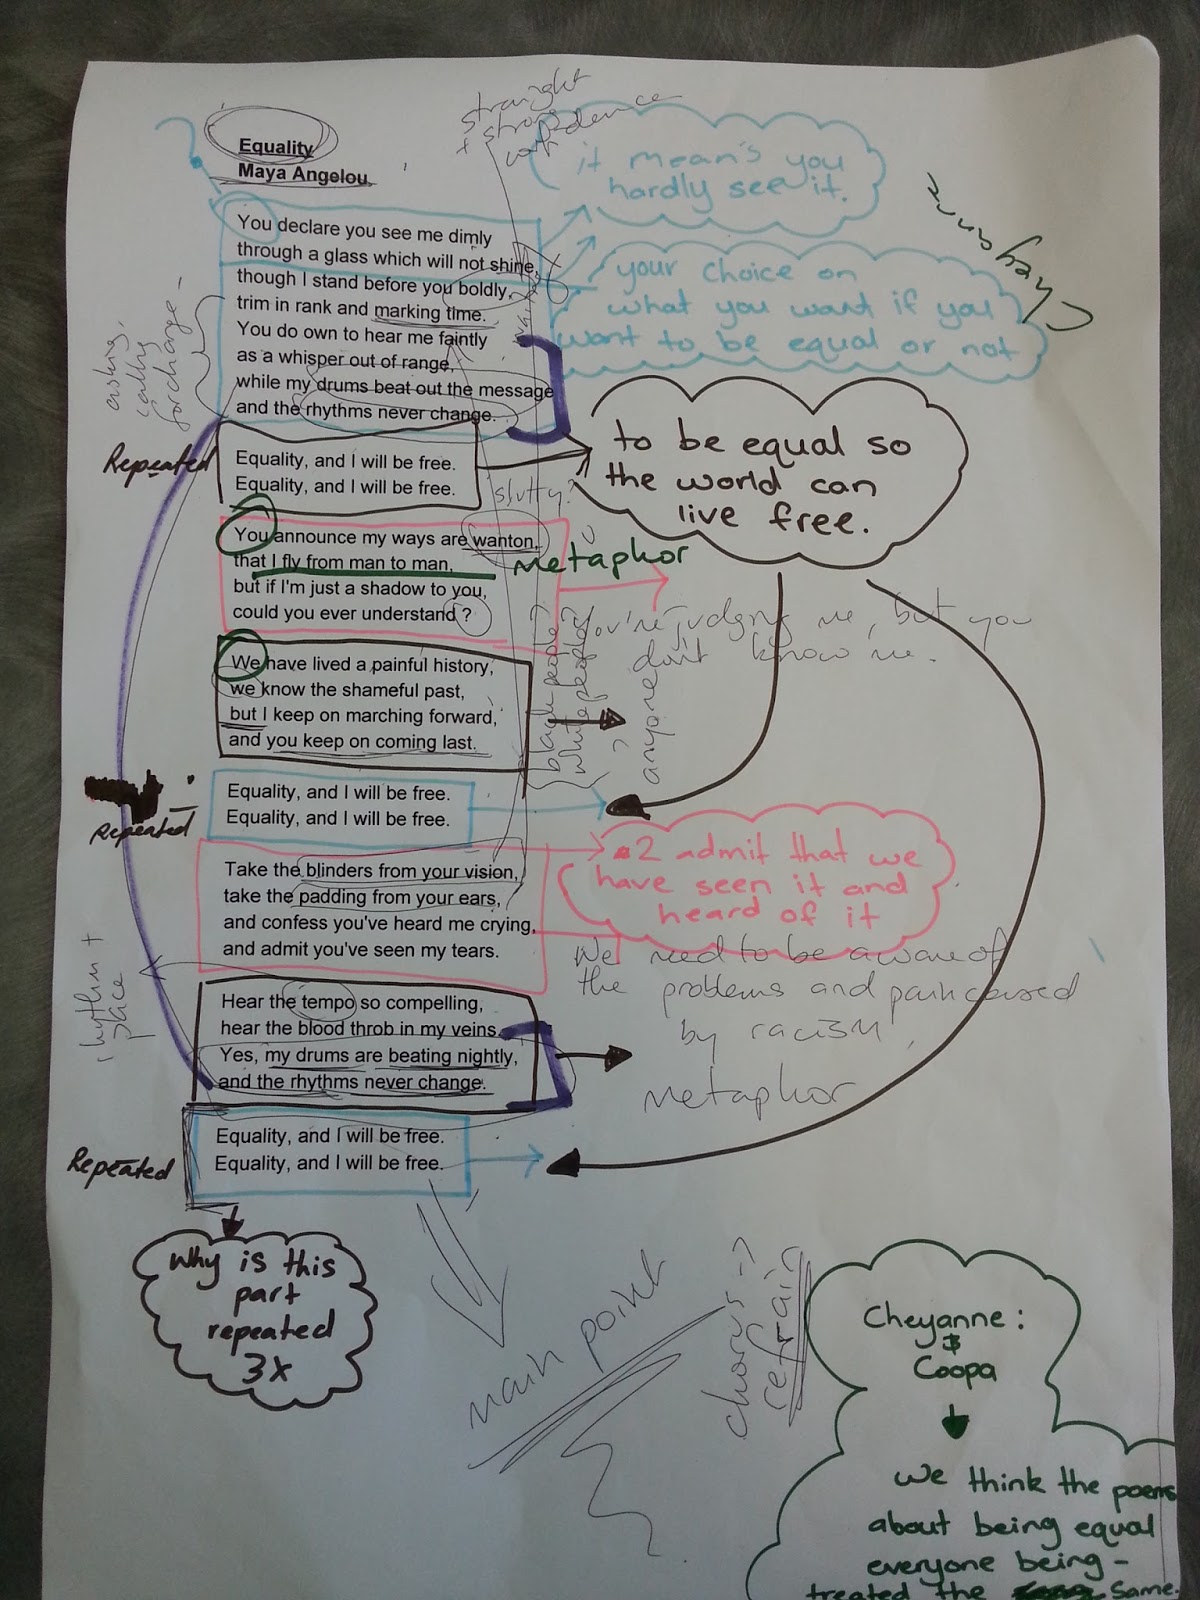 Equality
Maya Angelou
straight
+ strong
confidence
it mean's you
hardly see it.
Cheyanne
your choice on
what you want if you
want to be equal or not
You declare you see me dimly
through a glass which will not shine,
though I stand before you boldly,
trim in rank and marking time.
You do own to hear me faintly
as a whisper out of range,
while my drums beat out the message
and the rhythms never change.
asking,
calling
for change
Repeated
Equality, and I will be free.
Equality, and I will be free.
to be equal so
the world can
live free.
slutty?
You announce my ways are wanton,
that I fly from man to man,
but if I'm just a shadow to you,
could you ever understand ?
metaphor
You're judging me, but you
don't know me.
We have lived a painful history,
we know the shameful past,
but I keep on marching forward,
and you keep on coming last.
black people?
white people?
? anyone
Repeated
Equality, and I will be free.
Equality, and I will be free.
Take the blinders from your vision,
take the padding from your ears,
and confess you've heard me crying,
and admit you've seen my tears.
2 admit that we
have seen it and
heard of it
We need to be aware of
the problems and pain caused
by racism,
rhythm +
pace
Hear the tempo so compelling,
hear the blood throb in my veins.
Yes, my drums are beating nightly,
and the rhythms never change.
metaphor
Repeated
Equality, and I will be free.
Equality, and I will be free.
Why is this
part
repeated
3x
main point
chorus ->
refrain
Cheyanne:
&
Coopa
We think the poems
about being equal
everyone being -
treated the same.